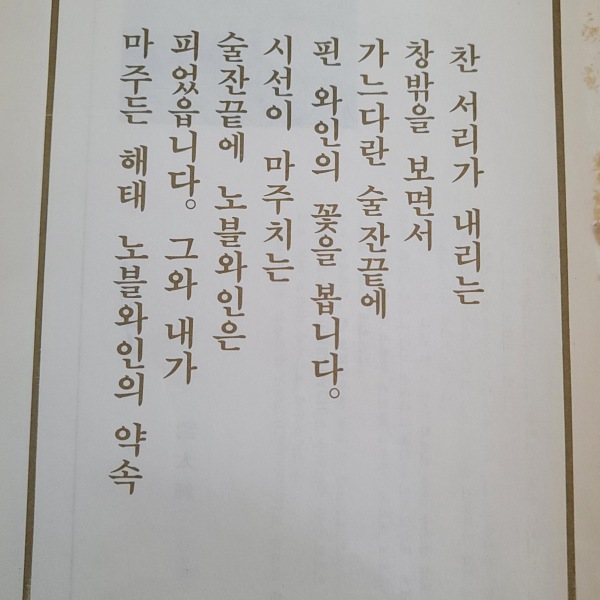 찬 서리가 내리는
창밖을 보면서
가느다란 술잔끝에
핀 와인의 꽃을 봅니다.
시선이 마주치는
술잔끝에 노블와인은
피었읍니다. 그와 내가
마주든 해태 노블와인의 약속